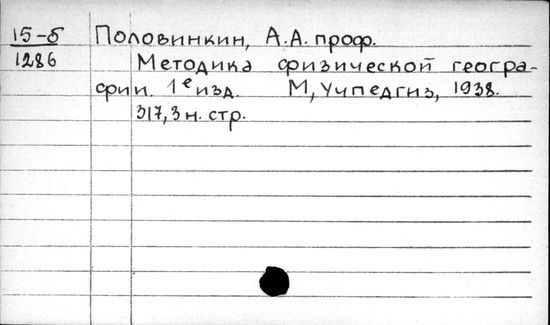 15-б Половинкин, А.А. проф.
1286 Методика физической геогра-
фии. 1е изд. М, Учпедгиз, 1938.
317, 3 н. стр.